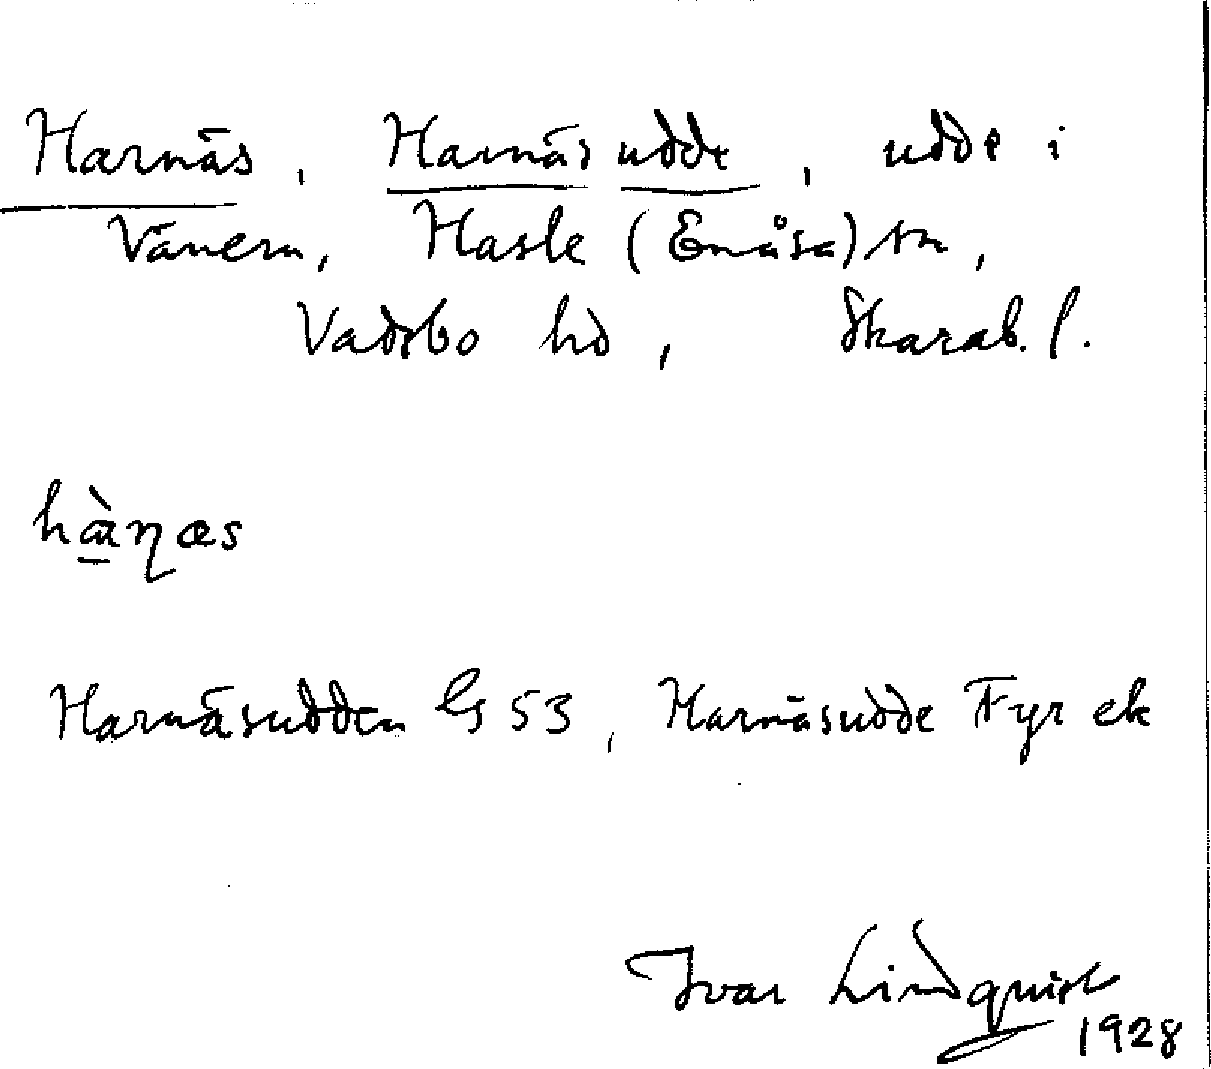 Harnäs, Harnäs udde, udde i
Vänern, Hasle (Enåsa) sn,
Vadsbo hd, Skarab. l.
hä̀ɳæs
Harnäsudden G 53, Harnäsudde Fyr ek
Ivar Lindquist
1928